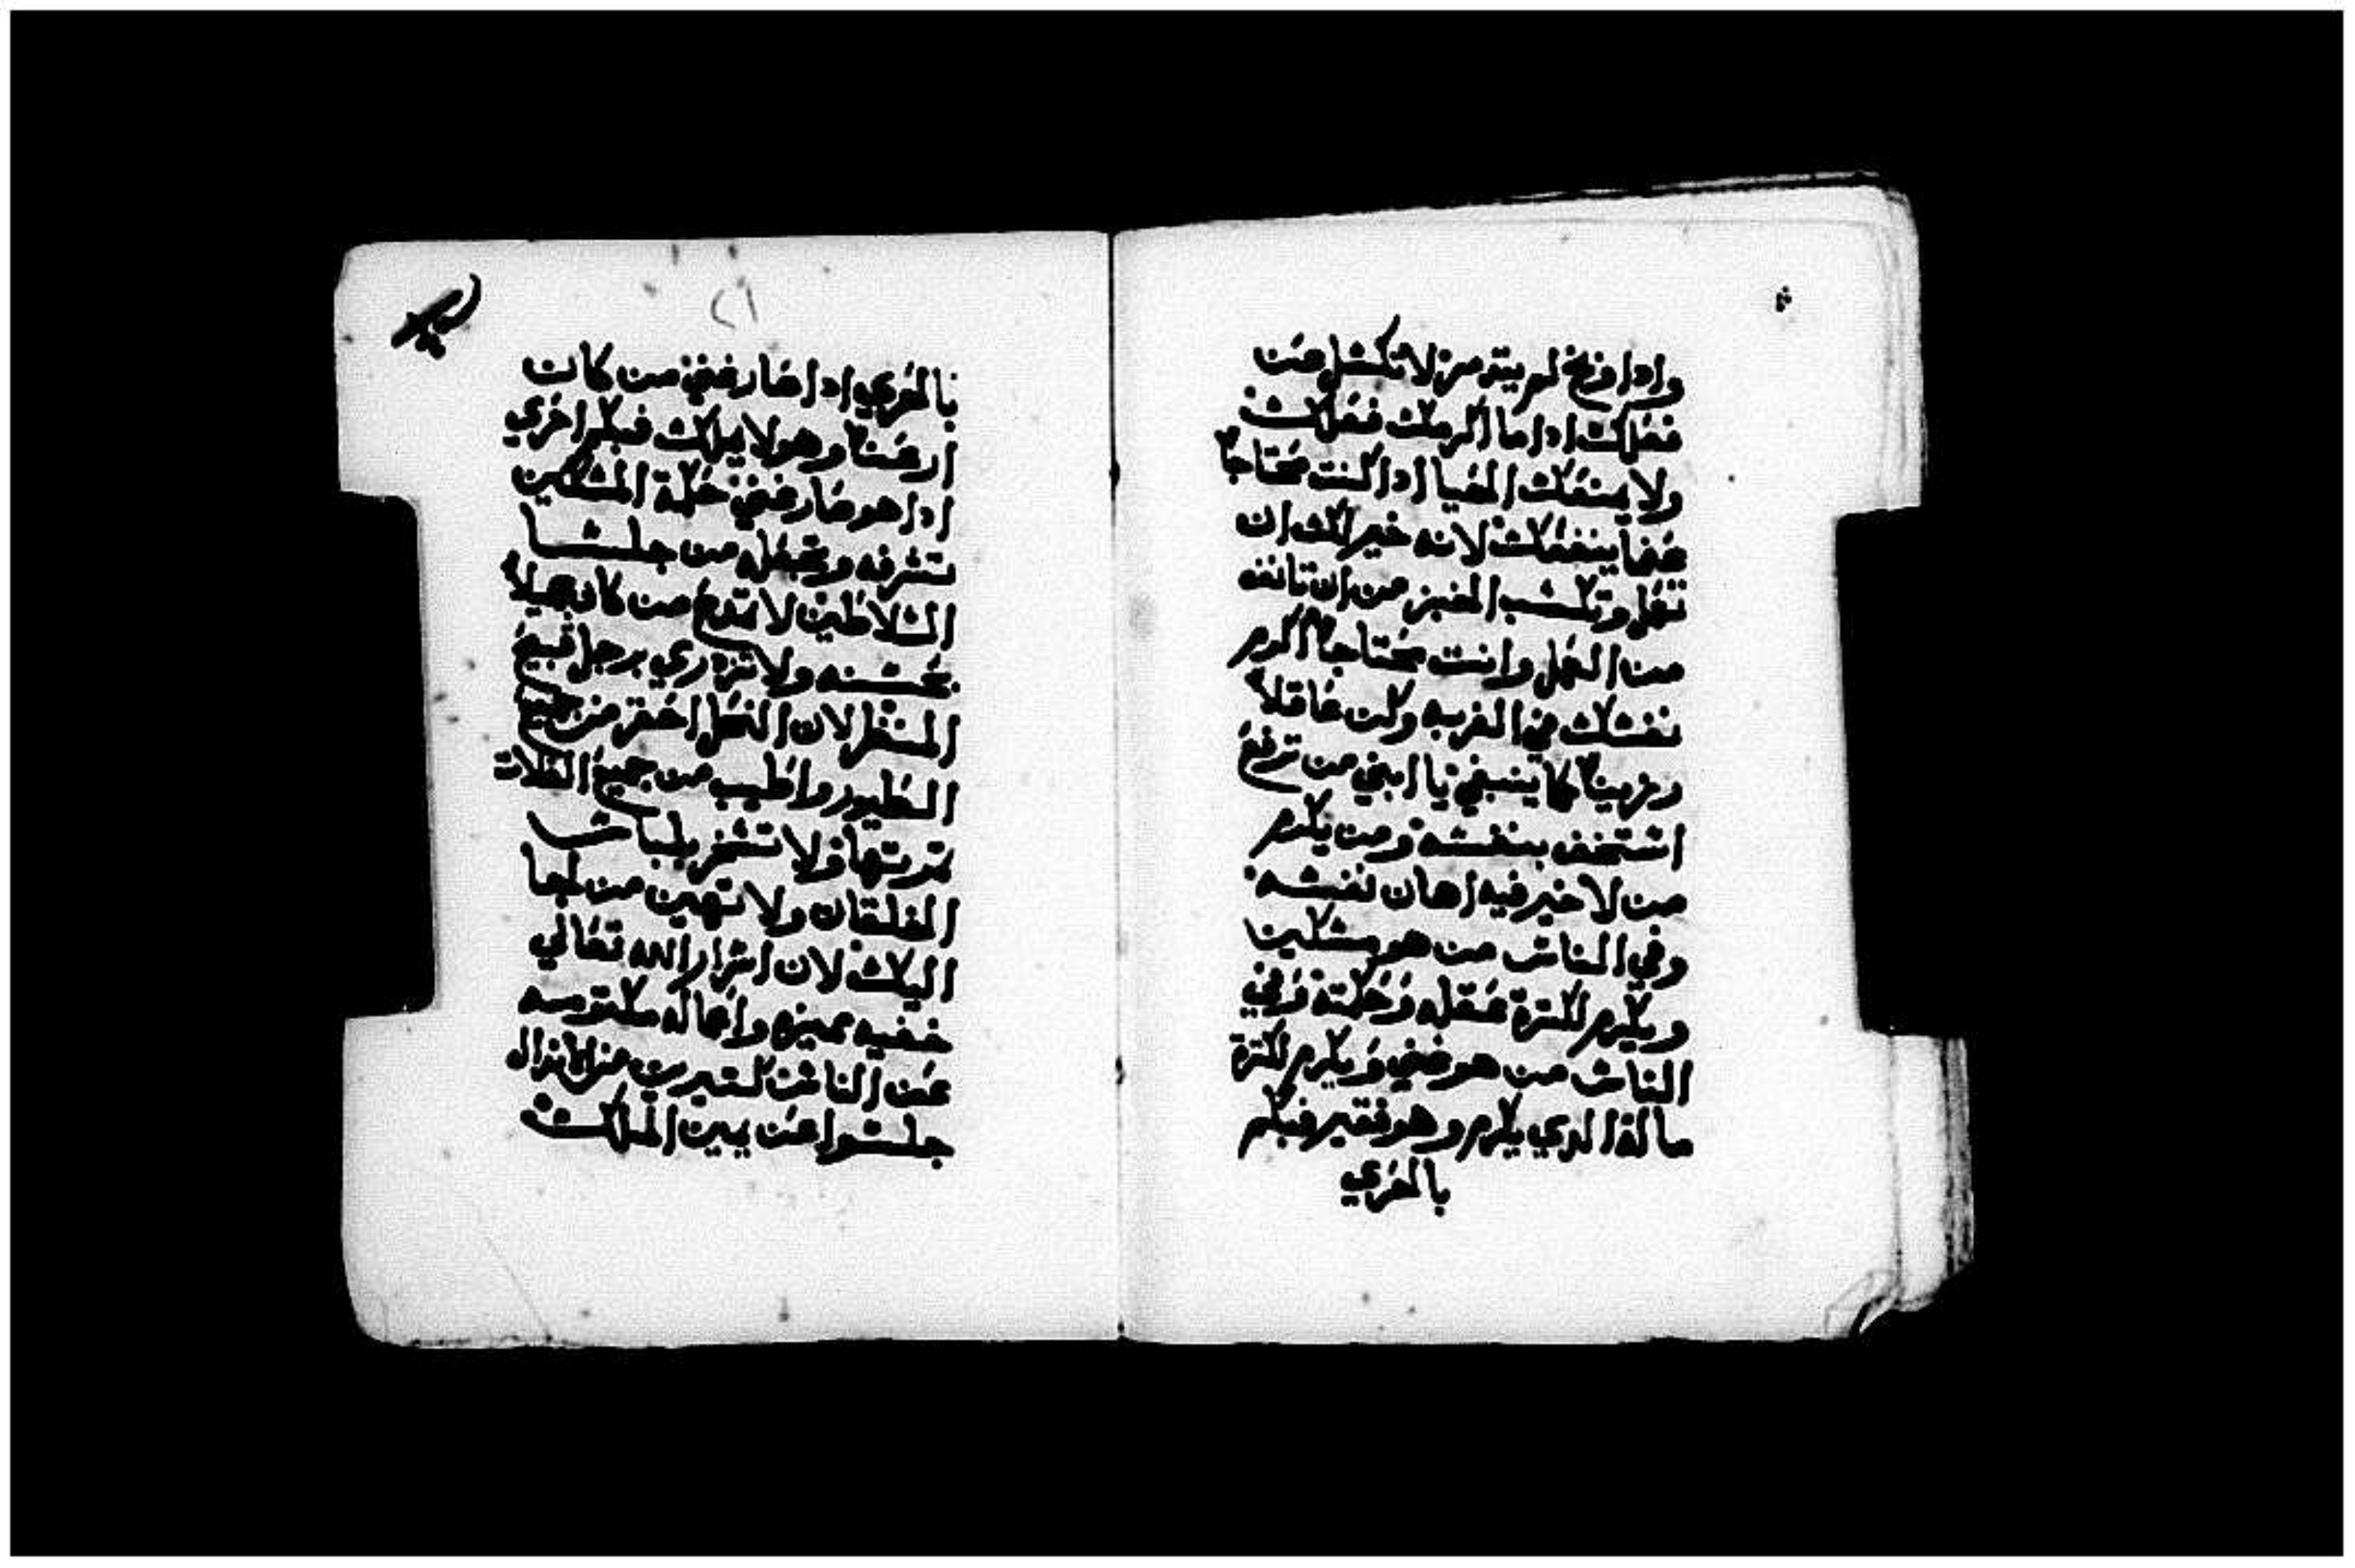 وادا وبخ لم يتدمر لا تكشل عن
فعلك اداما اكرمت فعلك
ولا ينفعك الحيا اداكنت محتاجا
عما ينفعك لانه خير لك ان
تعمل وتكشب الخبز من ان تانف
من العمل وانت محتاجا اكرم
نفشك في الغربه وكن عاقلا
ورزينا كما ينبغي يا ابني من ترفع
اشتخف بنفشه ومن يكرم
من لا خير فيه اهان نفشه
وفي الناش من هو مشكين
ويكرم لكترة عقله وحكمته وفي
الناش من هو غني ويكرم لكترة
ماله الدي يكرم وهو فقير فبكم
بالحري
٢١
بالحري ادا صار غني من كان
ارعنا وهو لا يملك فبكم احري
ادا هو صار غني حكمة المشكين
تشرفه وتجعله من جلشا
الشلاطين لا تمدح من كان جميلا
بحشنه ولا تزدري برجل قبيح
المنظر لان النحل احقر من جميع
الطيور واطيب من جميع الغلات
تمرتها ولا تشخر بلباش
الخلقان ولا تهين من لجا
اليك لان اشرار الله تعالي
خفيه مميزه واعماله مكتومه
عن الناش كتيرين من الاندال
جلشوا عن يمين الملك